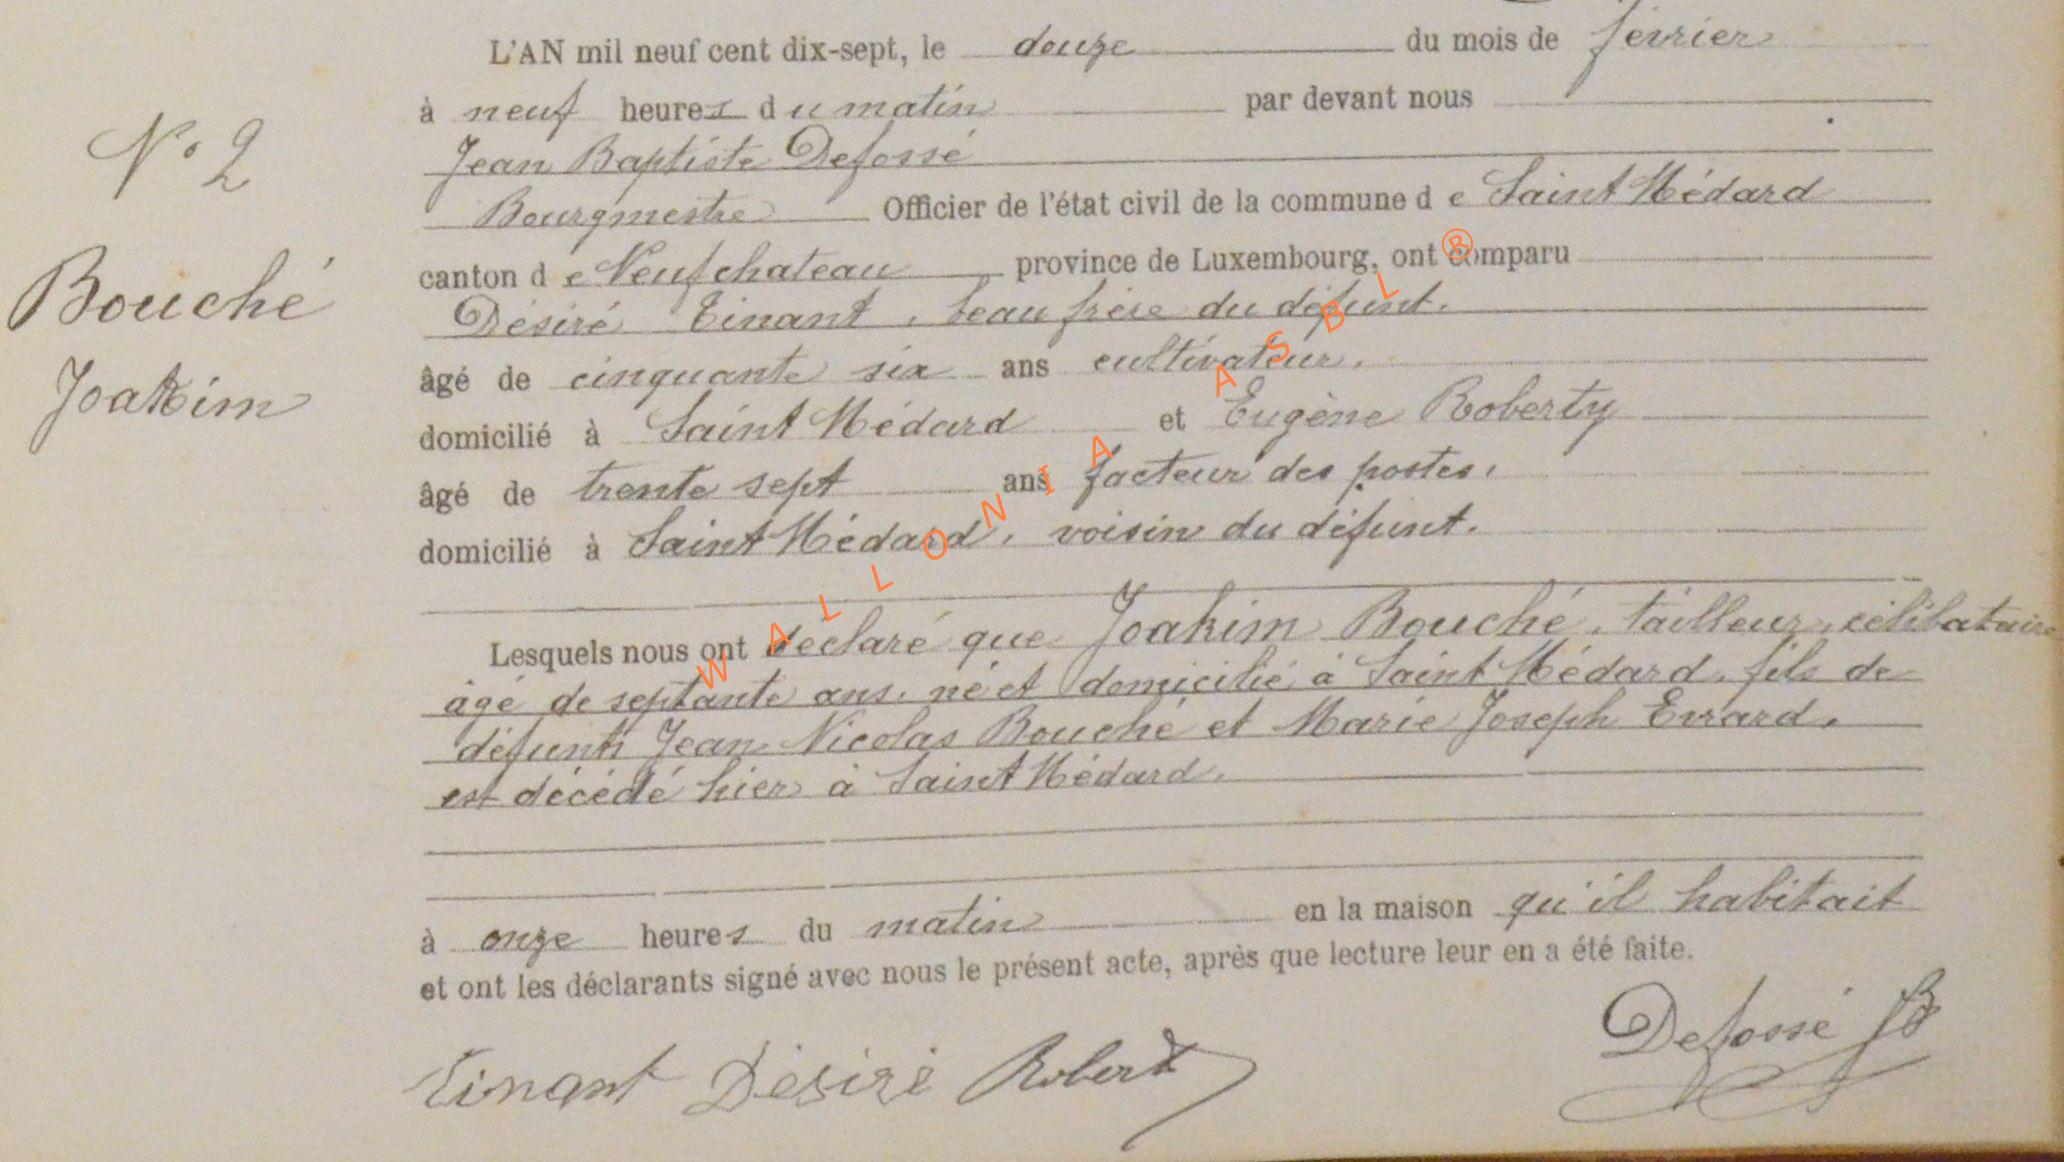 L'AN mil neuf cent dix-sept, le douze du mois de février
à neuf heures du matin par devant nous
Jean Baptiste Defossé
Bourgmestre Officier de l'état civil de la commune de Saint Médard
canton de Neufchateau province de Luxembourg, ont comparu
Désiré Tinant, beau frère du défunt.
âgé de cinquante six ans cultivateur.
domicilié à Saint Médard et Eugène Roberty
âgé de trente sept ans facteur des postes,
domicilié à Saint Médard, voisin du défunt.
Lesquels nous ont déclaré que Joakim Bouché, tailleur, célibataire
âgé de septante ans, né et domicilié à Saint Médard, fils de
défunts Jean Nicolas Bouché et Marie Joseph Evrard,
est décédé hier à Saint Médard,
à onze heures du matin en la maison qu'il habitait
et ont les déclarants signé avec nous le présent acte, après que lecture leur en a été faite.
Tinant Désiré Roberty Defossé JB
N° 2
Bouché
Joakim
WALLONIA ASBL ®